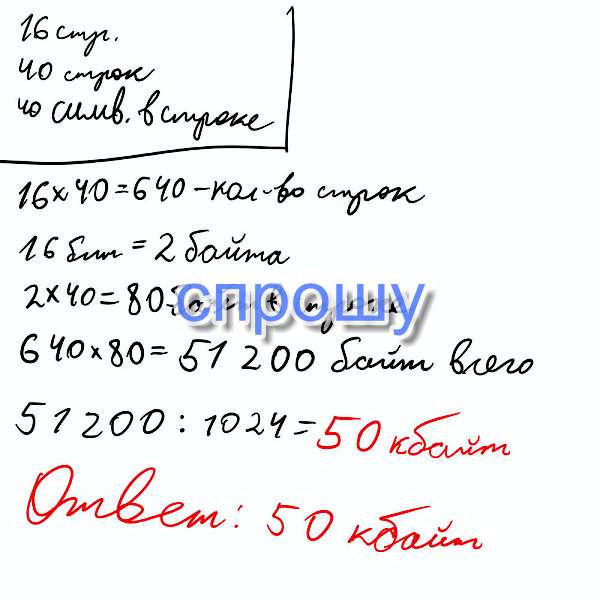 16 стр.
40 строк
40 симв. в строке
16×40=640-кол-во строк
16 бит = 2 байта
2×40=80
спрошу
640×80= 51 200 байт всего
51200:1024=50 кбайт
Ответ: 50 кбайт